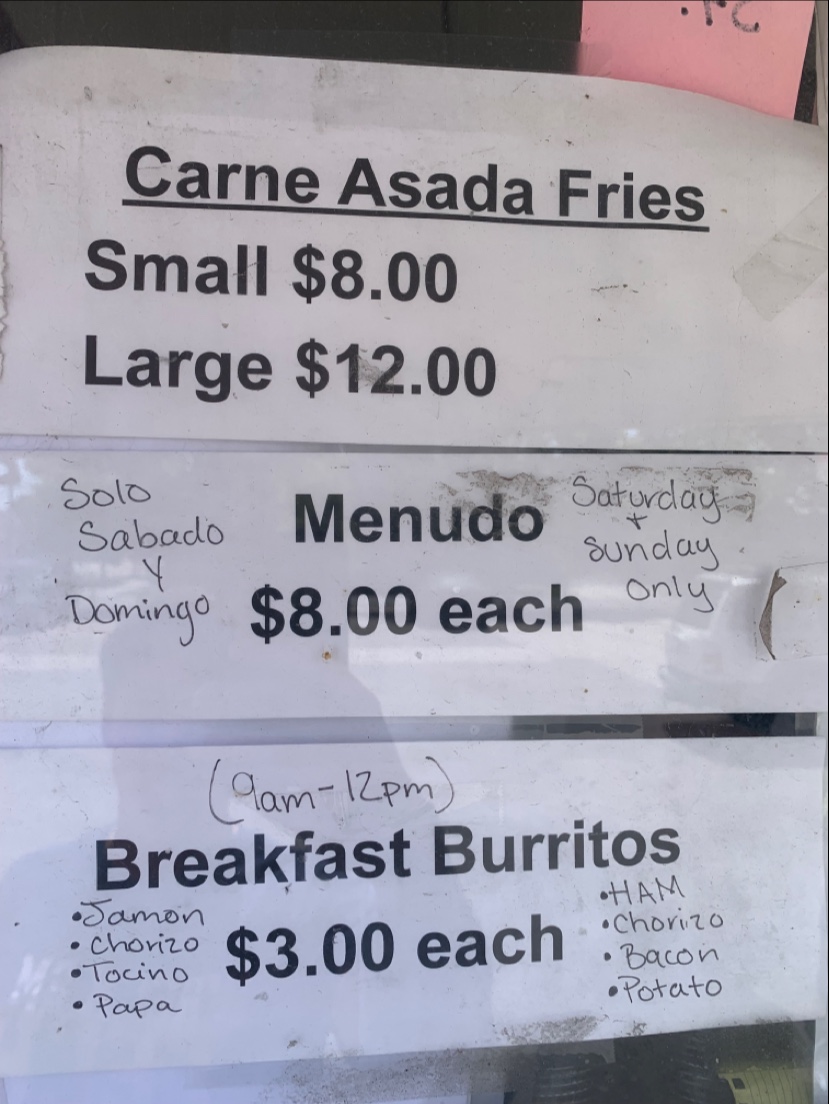 Carne Asada Fries
Small $8.00
Large $12.00
Solo
Sabado
Y
Domingo
Menudo
$8.00 each
Saturday
+
Sunday
only
(9am-12pm)
Breakfast Burritos
•Jamon
• Chorizo
•Tocino
• Papa
$3.00 each
•HAM
•Chorizo
• Bacon
•Potato